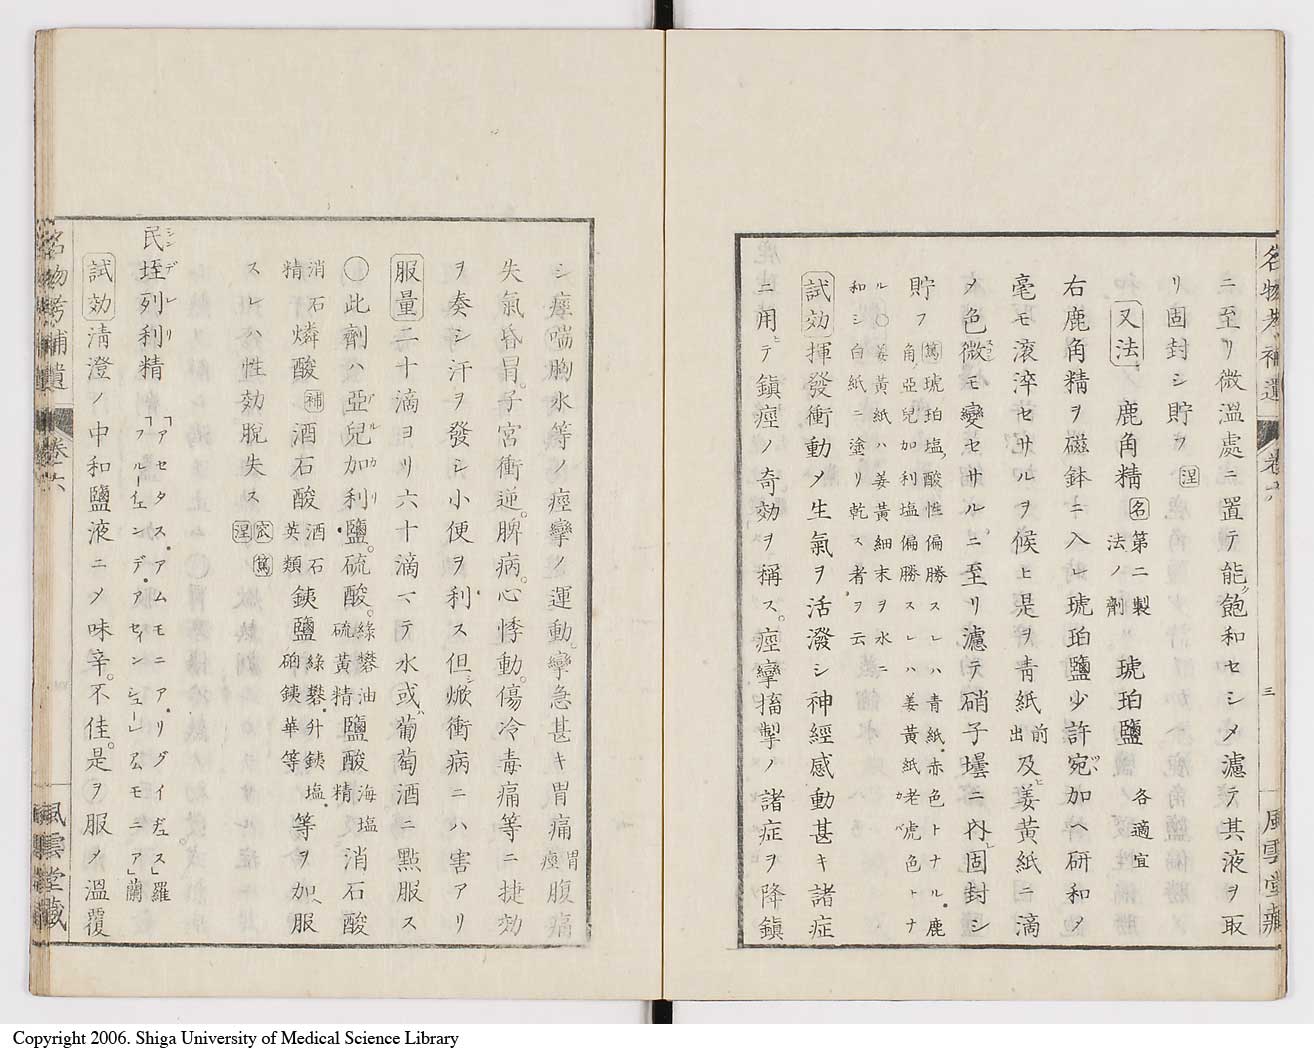 名物考補遺 卷六 三 風雲堂藏
ニ至リ微溫處ニ置テ能飽和セシメ濾テ其液ヲ取
リ固封シ貯フ 涅
又法 鹿角精 名第二製法ノ劑 琥珀鹽 各適宜
右鹿角精ヲ磁鉢ニ入レ琥珀鹽少許宛加ヘ研和メ
毫モ滚滓セサルヲ候ヒ是ヲ靑紙前出及ヒ姜黃紙ニ滴
メ色微モ變セサルニ至リ濾テ硝子壜ニ內レ固封シ
貯フ 篤琥珀塩酸性偏勝スレハ靑紙赤色トナル鹿
角亞兒加利塩偏勝スレハ姜黃紙老虎色トナ
ル〇姜黃紙ハ姜黃細末ヲ水ニ
和シ白紙ニ塗リ乾ス者ヲ云
試効 揮發衝動メ生氣ヲ活潑シ神經感動甚キ諸症
ニ用ヒテ鎭痙ノ奇効ヲ稱ス。痙攣搐掣ノ諸症ヲ降鎭
シ痙喘胸水等ノ痙攣ノ運動。攣急甚キ胃痛胃痙腹痛
失氣昏冒。子宮衝逆。脾病。心悸動。傷冷毒痛等ニ捷効
ヲ奏シ汗ヲ發シ小便ヲ利ス但シ焮衝病ニハ害アリ
服量 二十滴ヨリ六十滴マテ水或ハ葡萄酒ニ點服ス
〇此劑ハ亞兒加利鹽。硫酸。綠攀油硫黃精鹽酸海塩精消石酸
消石精燐酸補酒石酸酒石英類鋏鹽綠礬升鋏塩砲鋏華等等ヲ加ヘ服
スレハ性効脫失ス 宏篤涅
民垤列利精 「アセタス・アムモニア・リグイヂュス」羅
「フルーイェンデ・アセインシューレ・アムモニア」蘭
試効 淸澄ノ中和鹽液ニメ味辛。不佳。是ヲ服メ溫覆
名物考補遺 卷六 風雲堂藏
Copyright 2006. Shiga University of Medical Science Library